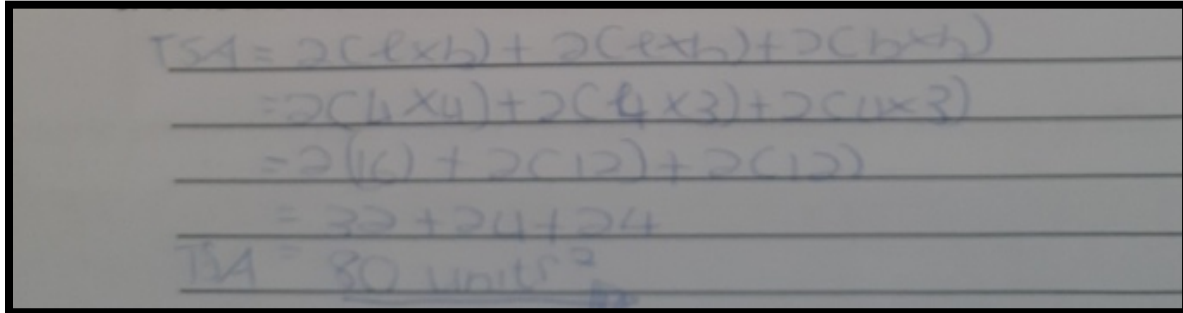 TSA = 2(l×b) + 2(l×h) + 2(b×h)
= 2(4×4) + 2(4×3) + 2(4×3)
= 2(16) + 2(12) + 2(12)
= 32 + 24 + 24
TSA = 80 units²